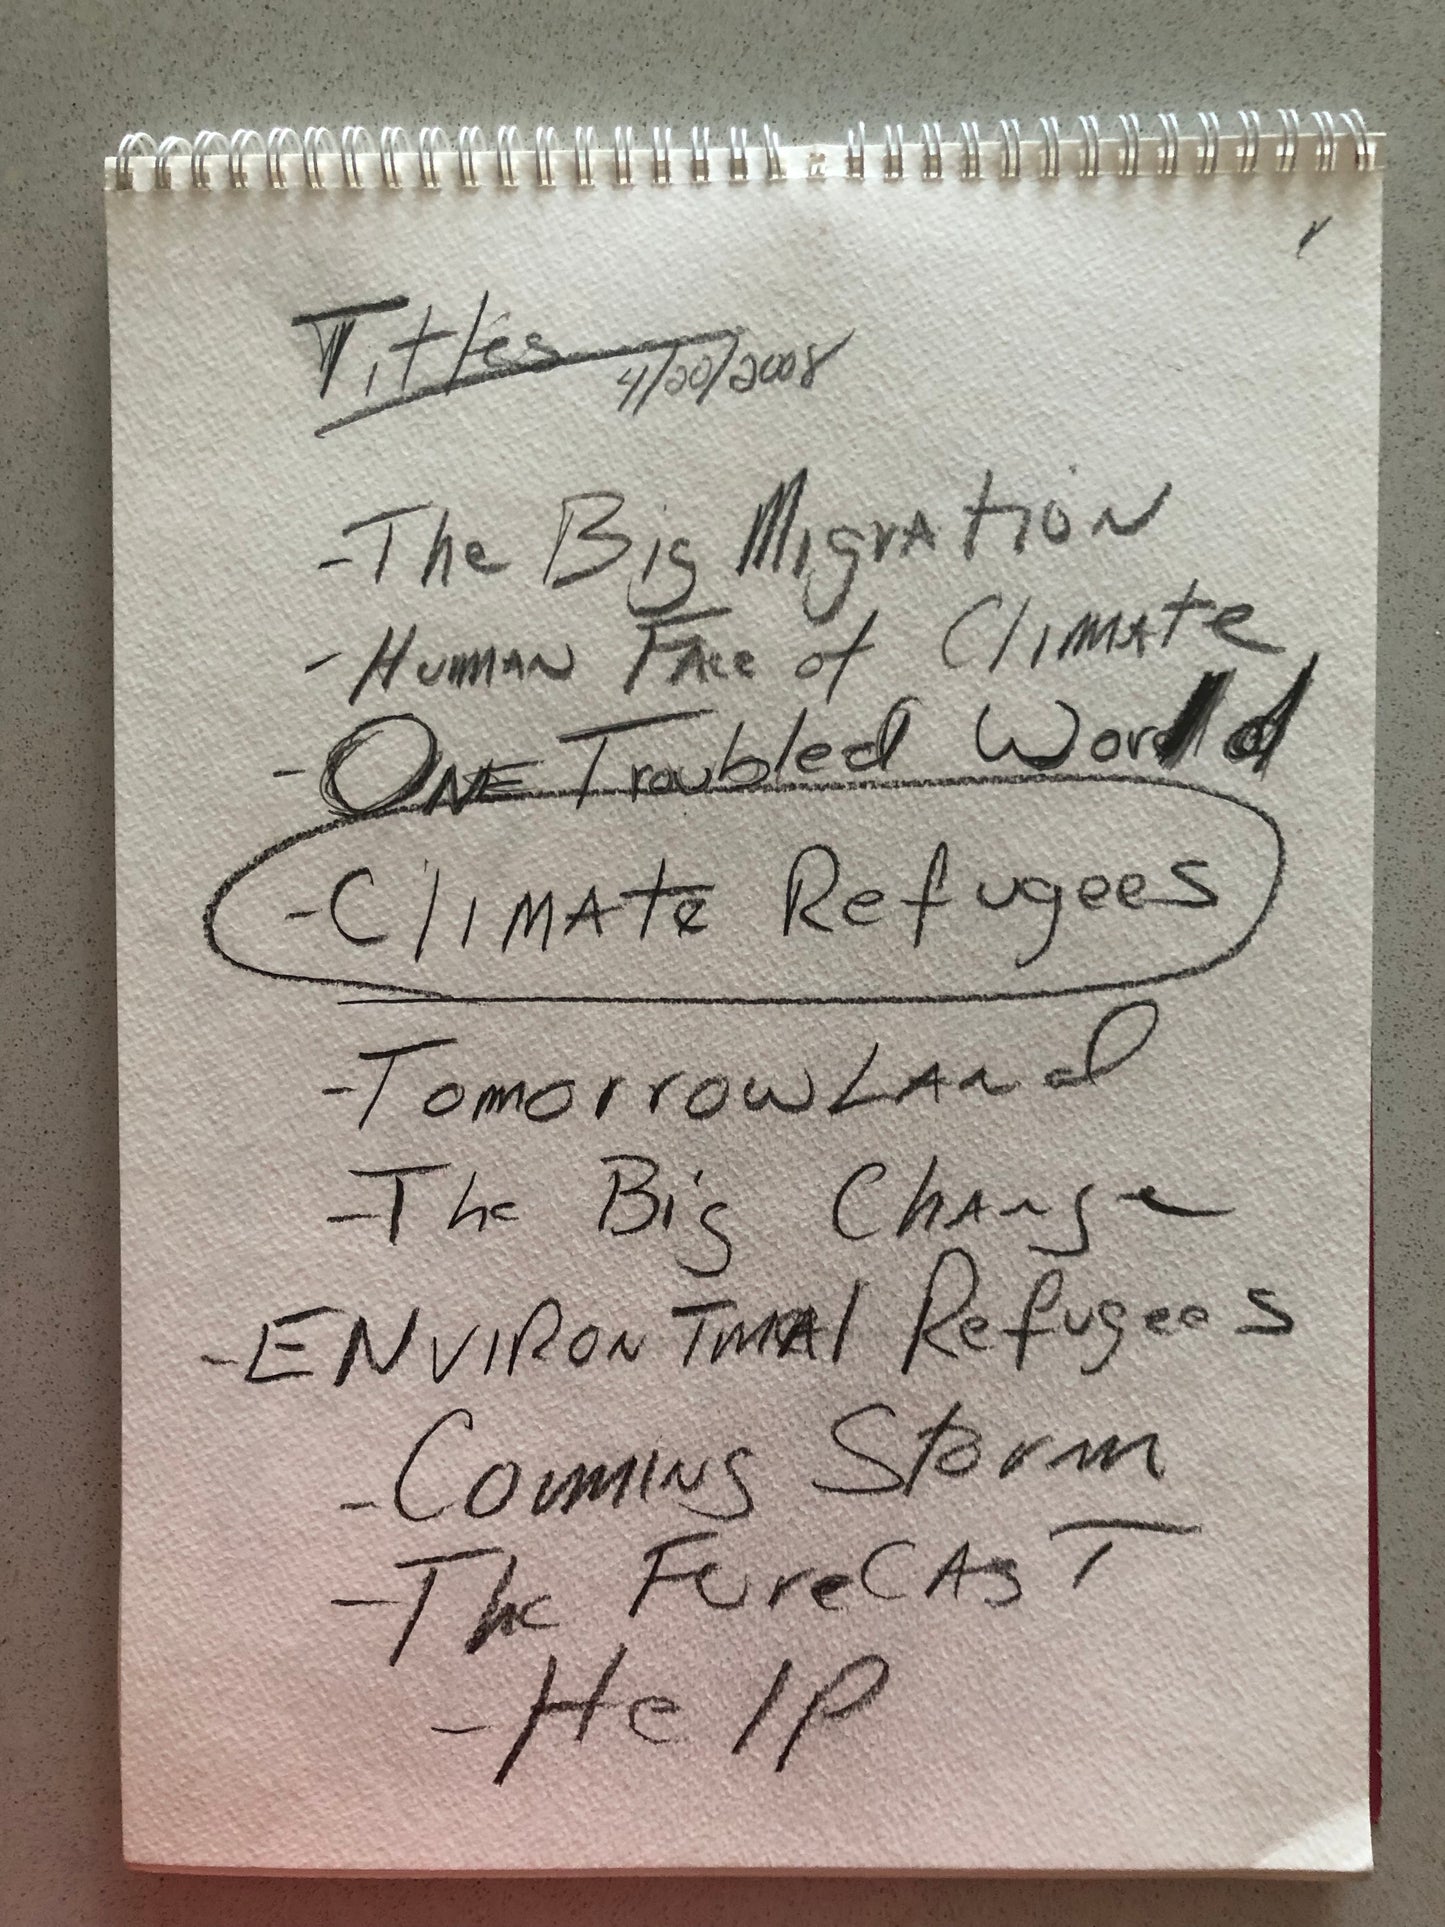 Titles
4/20/2008
- The Big Migration
- Human Face of Climate
- One Troubled World
- Climate Refugees
- Tomorrowland
- The Big Change
- Environtmal Refugees
- Comming Storm
- The Forecast
- Help